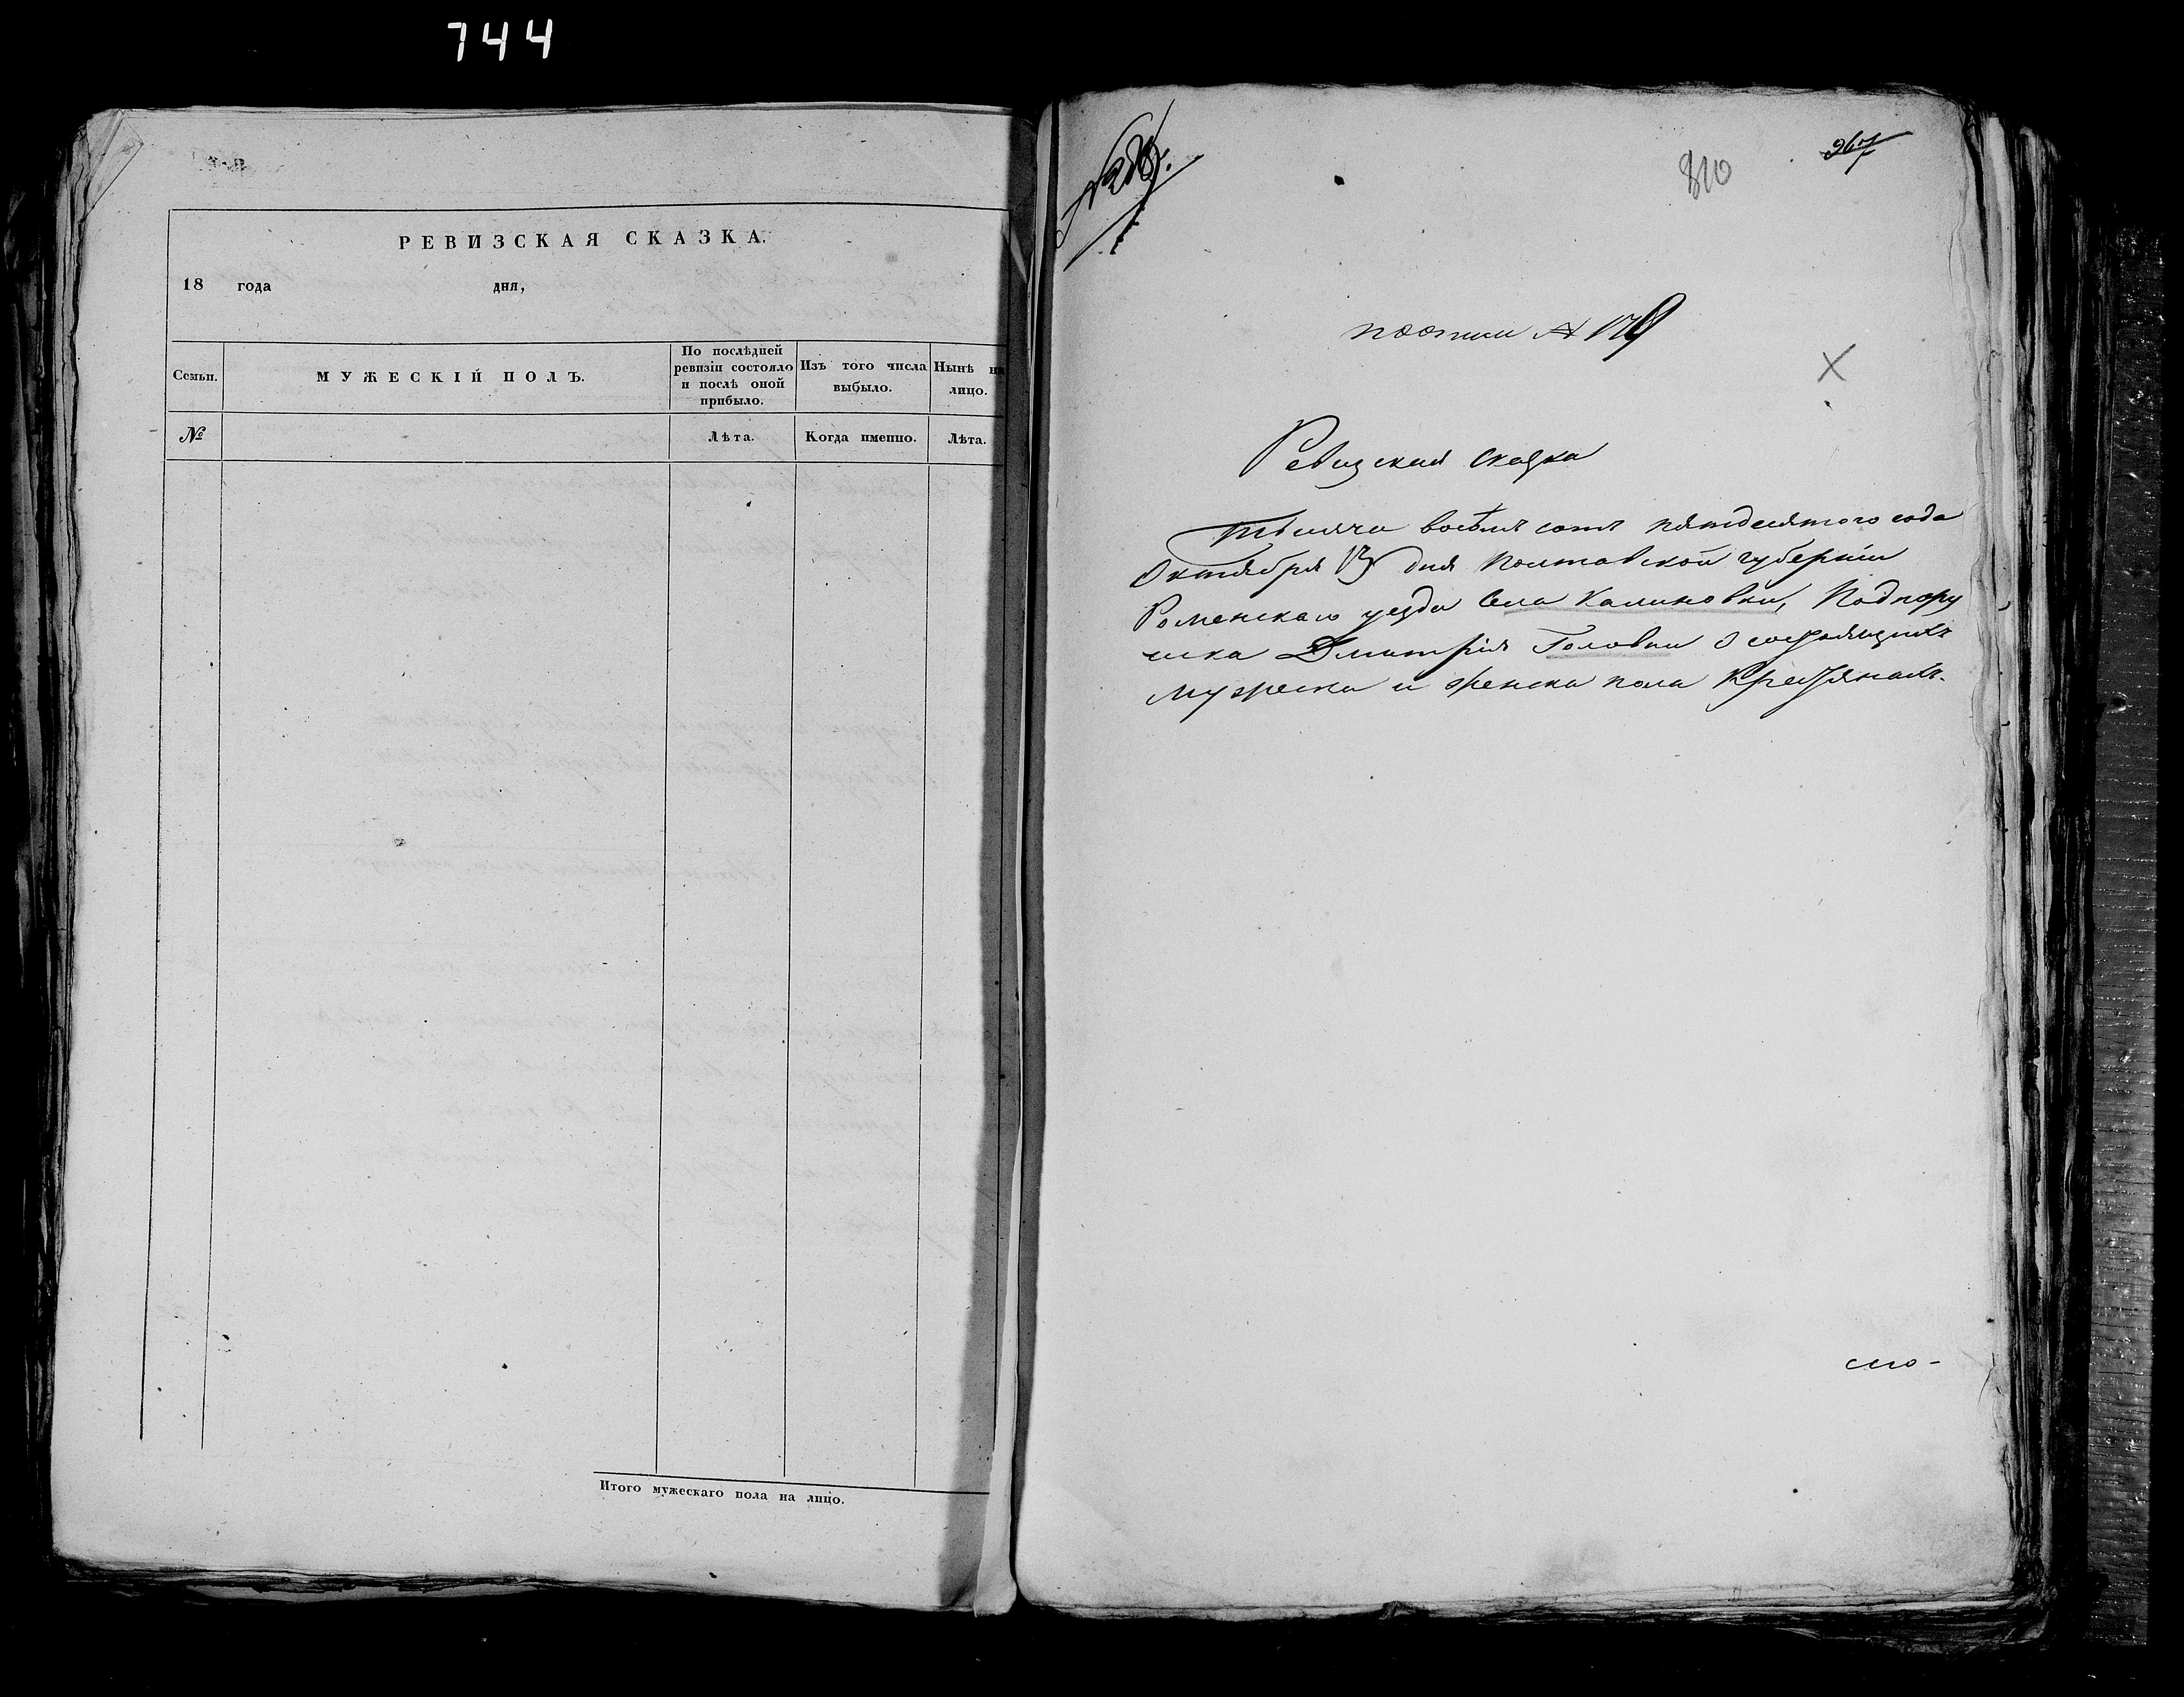 744
РЕВИЗСКАЯ СКАЗКА.
18 года дня,
Семьи.
МУЖЕСКІЙ ПОЛЪ.
По послѣдней
ревизіи состояло
и послѣ оной
прибыло.
Изъ того числа
выбыло.
Нынѣ на
лицо.
№
Лѣта.
Когда именно.
Лѣта.
Итого мужескаго пола на лицо.
267
810
№ 179
Ревизская сказка
Тысяча восемь сотъ пятдесятого года
Октября дня Полтавской губерніи
Роменскаго уезда Села Калиновки, Подпору
чика Дмитрія Головни О состоящихъ
мужеска и женска пола Крестьянахъ.